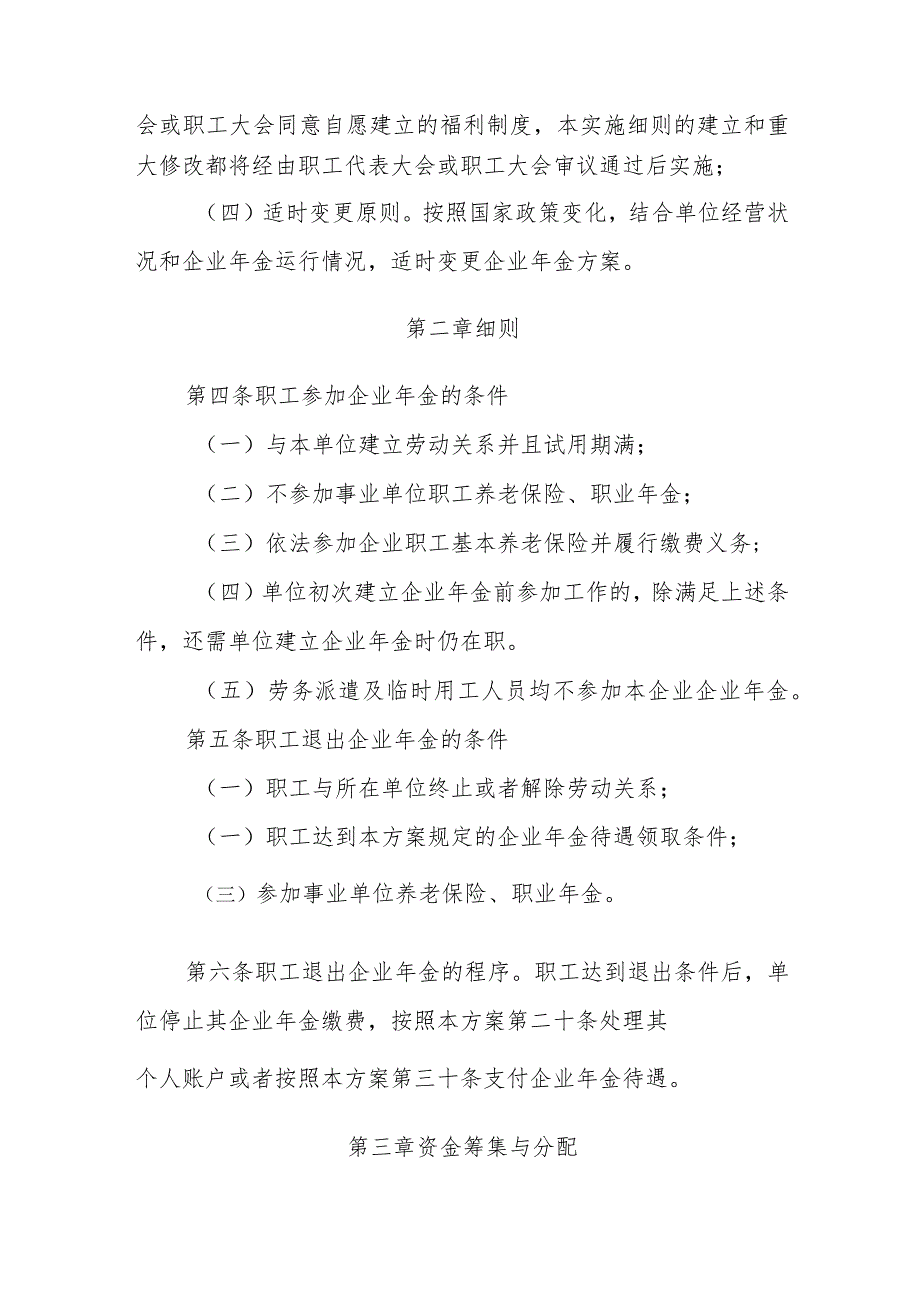 会或职工大会同意自愿建立的福利制度，本实施细则的建立和重
大修改都将经由职工代表大会或职工大会审议通过后实施；
（四）适时变更原则。按照国家政策变化，结合单位经营状
况和企业年金运行情况，适时变更企业年金方案。
第二章细则
第四条职工参加企业年金的条件
（一）与本单位建立劳动关系并且试用期满；
（二）不参加事业单位职工养老保险、职业年金；
（三）依法参加企业职工基本养老保险并履行缴费义务;
（四）单位初次建立企业年金前参加工作的，除满足上述条
件，还需单位建立企业年金时仍在职。
（五）劳务派遣及临时用工人员均不参加本企业企业年金。
第五条职工退出企业年金的条件
（一）职工与所在单位终止或者解除劳动关系；
（一）职工达到本方案规定的企业年金待遇领取条件；
（三）参加事业单位养老保险、职业年金。
第六条职工退出企业年金的程序。职工达到退出条件后，单
位停止其企业年金缴费，按照本方案第二十条处理其
个人账户或者按照本方案第三十条支付企业年金待遇。
第三章资金筹集与分配